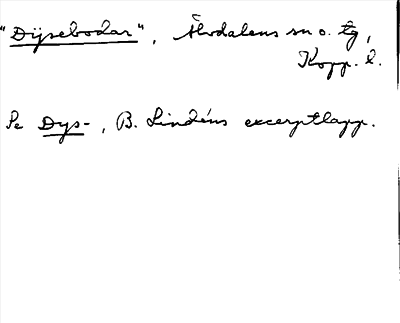 "Dijsebodar", Älvdalens sn o. tg,
Kopp. l.
Se Dys-, B. Lindéns excerptlapp.